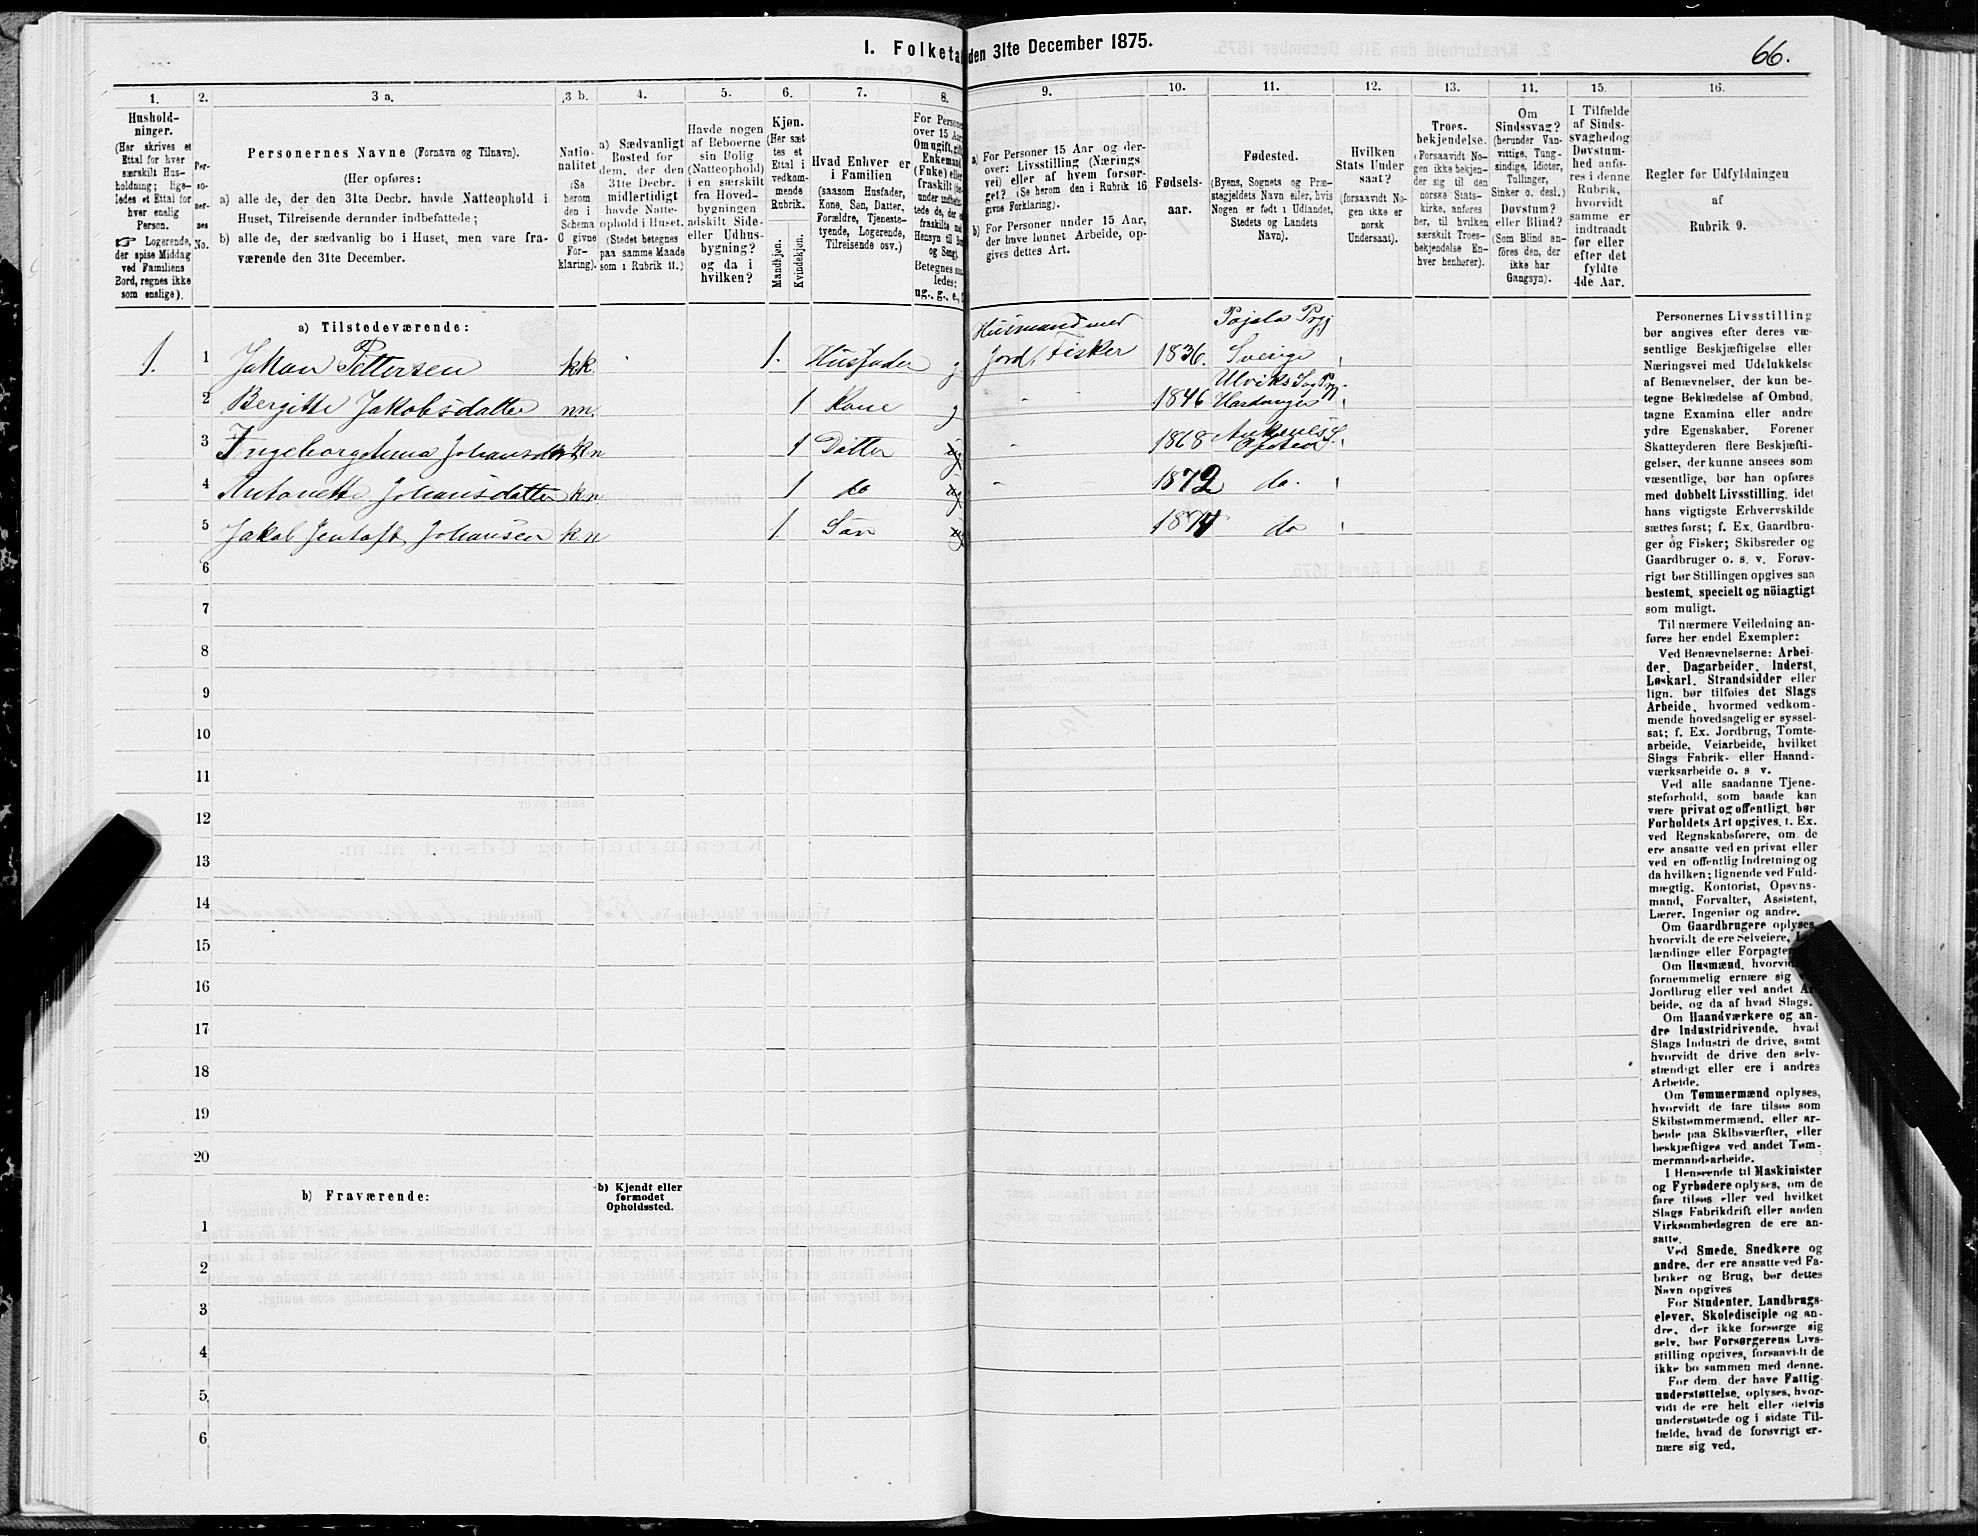 I. Folketal den 31te December 1875.
66.
1.
2.
3 a.
3 b.
4.
5.
6.
7.
8.
9.
10.
11.
12.
13.
14.
15.
16.
Hushold-
ninger.
(Her skrives et
Ettal for hver
særskilt Hus-
holdning; lige-
ledes et Ettal for
hver enslig
Person.
☞ Logerende,
der spise Middag
ved Familiens
Bord, regnes ikke
som enslige).
Per-
so-
ner-
nes
No.
Personernes Navne (Fornavn og Tilnavn).
(Her opføres:
a) alle de, der den 31te Decbr. havde Natteophold i
Huset, Tilreisende derunder indbefattede;
b) alle de, der sædvanlig bo i Huset, men vare fra-
værende den 31te December.
Natio-
nalitet
(Se
herom
den i
Schema
O givne
For-
klaring).
a) Sædvanligt
Bosted for
dem, der den
31te Decbr.
midlertidigt
havde Natte-
ophold i Huset.
(Stedet betegnes
paa samme Maade
som i Rubrik 11.)
Havde nogen
af Beboerne
sin Bolig
(Natteophold)
i en særskilt
fra Hoved-
bygningen
adskilt Side-
eller Udhus-
bygning?
og da i
hvilken?
Kjøn.
(Her sæt-
tes et
Ettal i
vedkom-
mende
Rubrik.
Mandkjøn.
Kvindekjøn.
Hvad Enhver er
i Familien
(saasom Husfader,
Kone, Søn, Datter,
Forældre, Tjeneste-
tyende, Logerende,
Tilreisende osv.)
For Personer
over 15 Aar
Om ugift, gift,
Enkemand
(Enke) eller
fraskilt
Betegnes saa-
ledes:
ug., g., e.,
a) For Personer 15 Aar og der-
over: Livsstilling (Nærings
vei) eller af hvem forsør-
get? (Se herom den i Rubrik 16
givne Forklaring).
b) For Personer under 15 Aar,
der have lønnet Arbeide, op-
gives dettes Art.
Fødsels-
aar.
Fødested.
(Byens, Sognets og Præ-
stegjeldets Navn eller, hvis
Nogen er født i Udlandet,
Stedets og Landets
Navn).
Hvilken
Stats Under
saat?
(forsaavidt No-
gen ikke er
norsk
Undersaat).
Troes-
bekjendelse.
(Forsaavidt No-
gen ikke bekjen-
der sig til den
norske Stats-
kirke, anføres
her, til hvilken
særskilt Troes-
bekjendelse En-
hver henhører).
Om
Sindssvag?
(herunder Van-
vittige, Tung-
sindige, Idioter,
Tullinger,
Sinker o. desl.)
Døvstum?
eller Blind?
(Som Blind an-
føres den, der
ikke har
Gangsyn).
I Tilfælde
af Sinds-
svaghed og
Døvstum-
hed anfø-
res i denne
Rubrik,
hvorvidt
samme er
indtraadt
før eller
efter det
fyldte
4de Aar.
Regler for Udfyldningen
af
Rubrik 9.
a) Tilstedeværende:
1. 1 Johan Pettersen kk. 1. Husfader g Husmand med Jord, Fisker 1836. Pajala Prgj Sverige
2 Bergitte Jakobsdatter nn. 1 Kone g 1846 Ulviks Sog Prgj Hardanger
3 Ingeborg Johansdtr kn 1 Datter ug 1868
4 Antonette Johansdatter kn 1 do ug 1872 do.
5 Jakob Jentoft Johansen kn 1. Søn ug 1874 do
6
7
8
9
10
11
12
13
14
15
16
17
18
19
20
b) Fraværende:
b) Kjendt eller
formodet
Opholdssted.
1
2
3
4
5
6
Personernes Livsstilling
bør angives efter deres væ-
sentlige Beskjæftigelse eller
Næringsvei med Udelukkelse
af Benævnelser, der kun be-
tegne Beklædelse af Ombud,
tagne Examina eller andre
ydre Egenskaber. Forener
Skatteyderen flere Beskjæfti-
gelser, der kunne ansees som
væsentlige, bør han opføres
med dobbelt Livsstilling, idet
hans vigtigste Erhvervskilde
sættes først; f. Ex. Gaardbru-
ger og Fisker; Skibsreder og
Gaardbruger o. s. v. Forøv-
rigt bør Stillingen opgives saa
bestemt, specielt og nöiagtigt
som muligt.
Til nærmere Veiledning an-
føres her endel Exempler:
Ved Benævnelserne: Arbei-
der, Dagarbeider, Inderst,
Løskarl, Strandsidder eller
lign. bør tilføies det Slags
Arbeide, hvormed vedkom-
mende hovedsagelig er syssel-
sat; f. Ex. Jordbrug, Tomte-
arbeide, Veiarbeide, hvilket
Slags Fabrik- eller Haand-
værksarbeide o. s v.
Ved alle saadanne Tjene-
steforhold, som baade kan
være privat og offentligt, bør
Forholdets Art opgives, f. Ex.
ved Regnskabsførere, om de
ere ansatte ved en privat eller
ved en offentlig Indretning og
da hvilken; lignende ved Fuld-
mægtig, Kontorist, Opsyns-
mand, Forvalter, Assistent,
Lærer, Ingeniør og andre.
Om Gaardbrugere oplyses,
hvorvidt de ere Selveiere, Lei-
lændinge eller Forpagtere.
Om Husmænd, hvorvidt
fornemmelig ernære sig
Jordbrug eller ved andet Ar-
beide, og da af hvad Slags.
Om Haandværkere og an-
dre Industridrivende, hvad
Slags Industri de drive, samt
hvorvidt de drive den selv-
stændigt eller ere i andres
Arbeide.
Om Tømmermænd oplyses,
hvorvidt de fare tilsøs som
Skibstømmermænd, eller ar-
beide paa Skibsværfter, eller
beskjæftiges ved andet Tøm-
mermandsarbeide.
I Henseende til Maskinister
og Fyrbødere oplyses, om de
fare tilsøs eller ved hvilket
Slags Fabrikdrift eller anden
Virksomhedsgren de ere an-
satte.
Ved Smede, Snedkere og
andre, der ere ansatte ved Fa-
briker og Brug, bør dettes
Navn opgives
For Studenter, Landbrugs-
elever, Skoledisciple og an-
dre, der ikke forsørge sig
selv, bør Forsørgerens Livs-
stilling opgives, forsaavidt de
ikke bo sammen med denne.
For dem, der have Fattig-
understøttelse, oplyses, hvor-
vidt de ere helt eller delvis
understøttede og i sidste Til-
fælde, hvad de forøvrigt er-
nære sig ved.